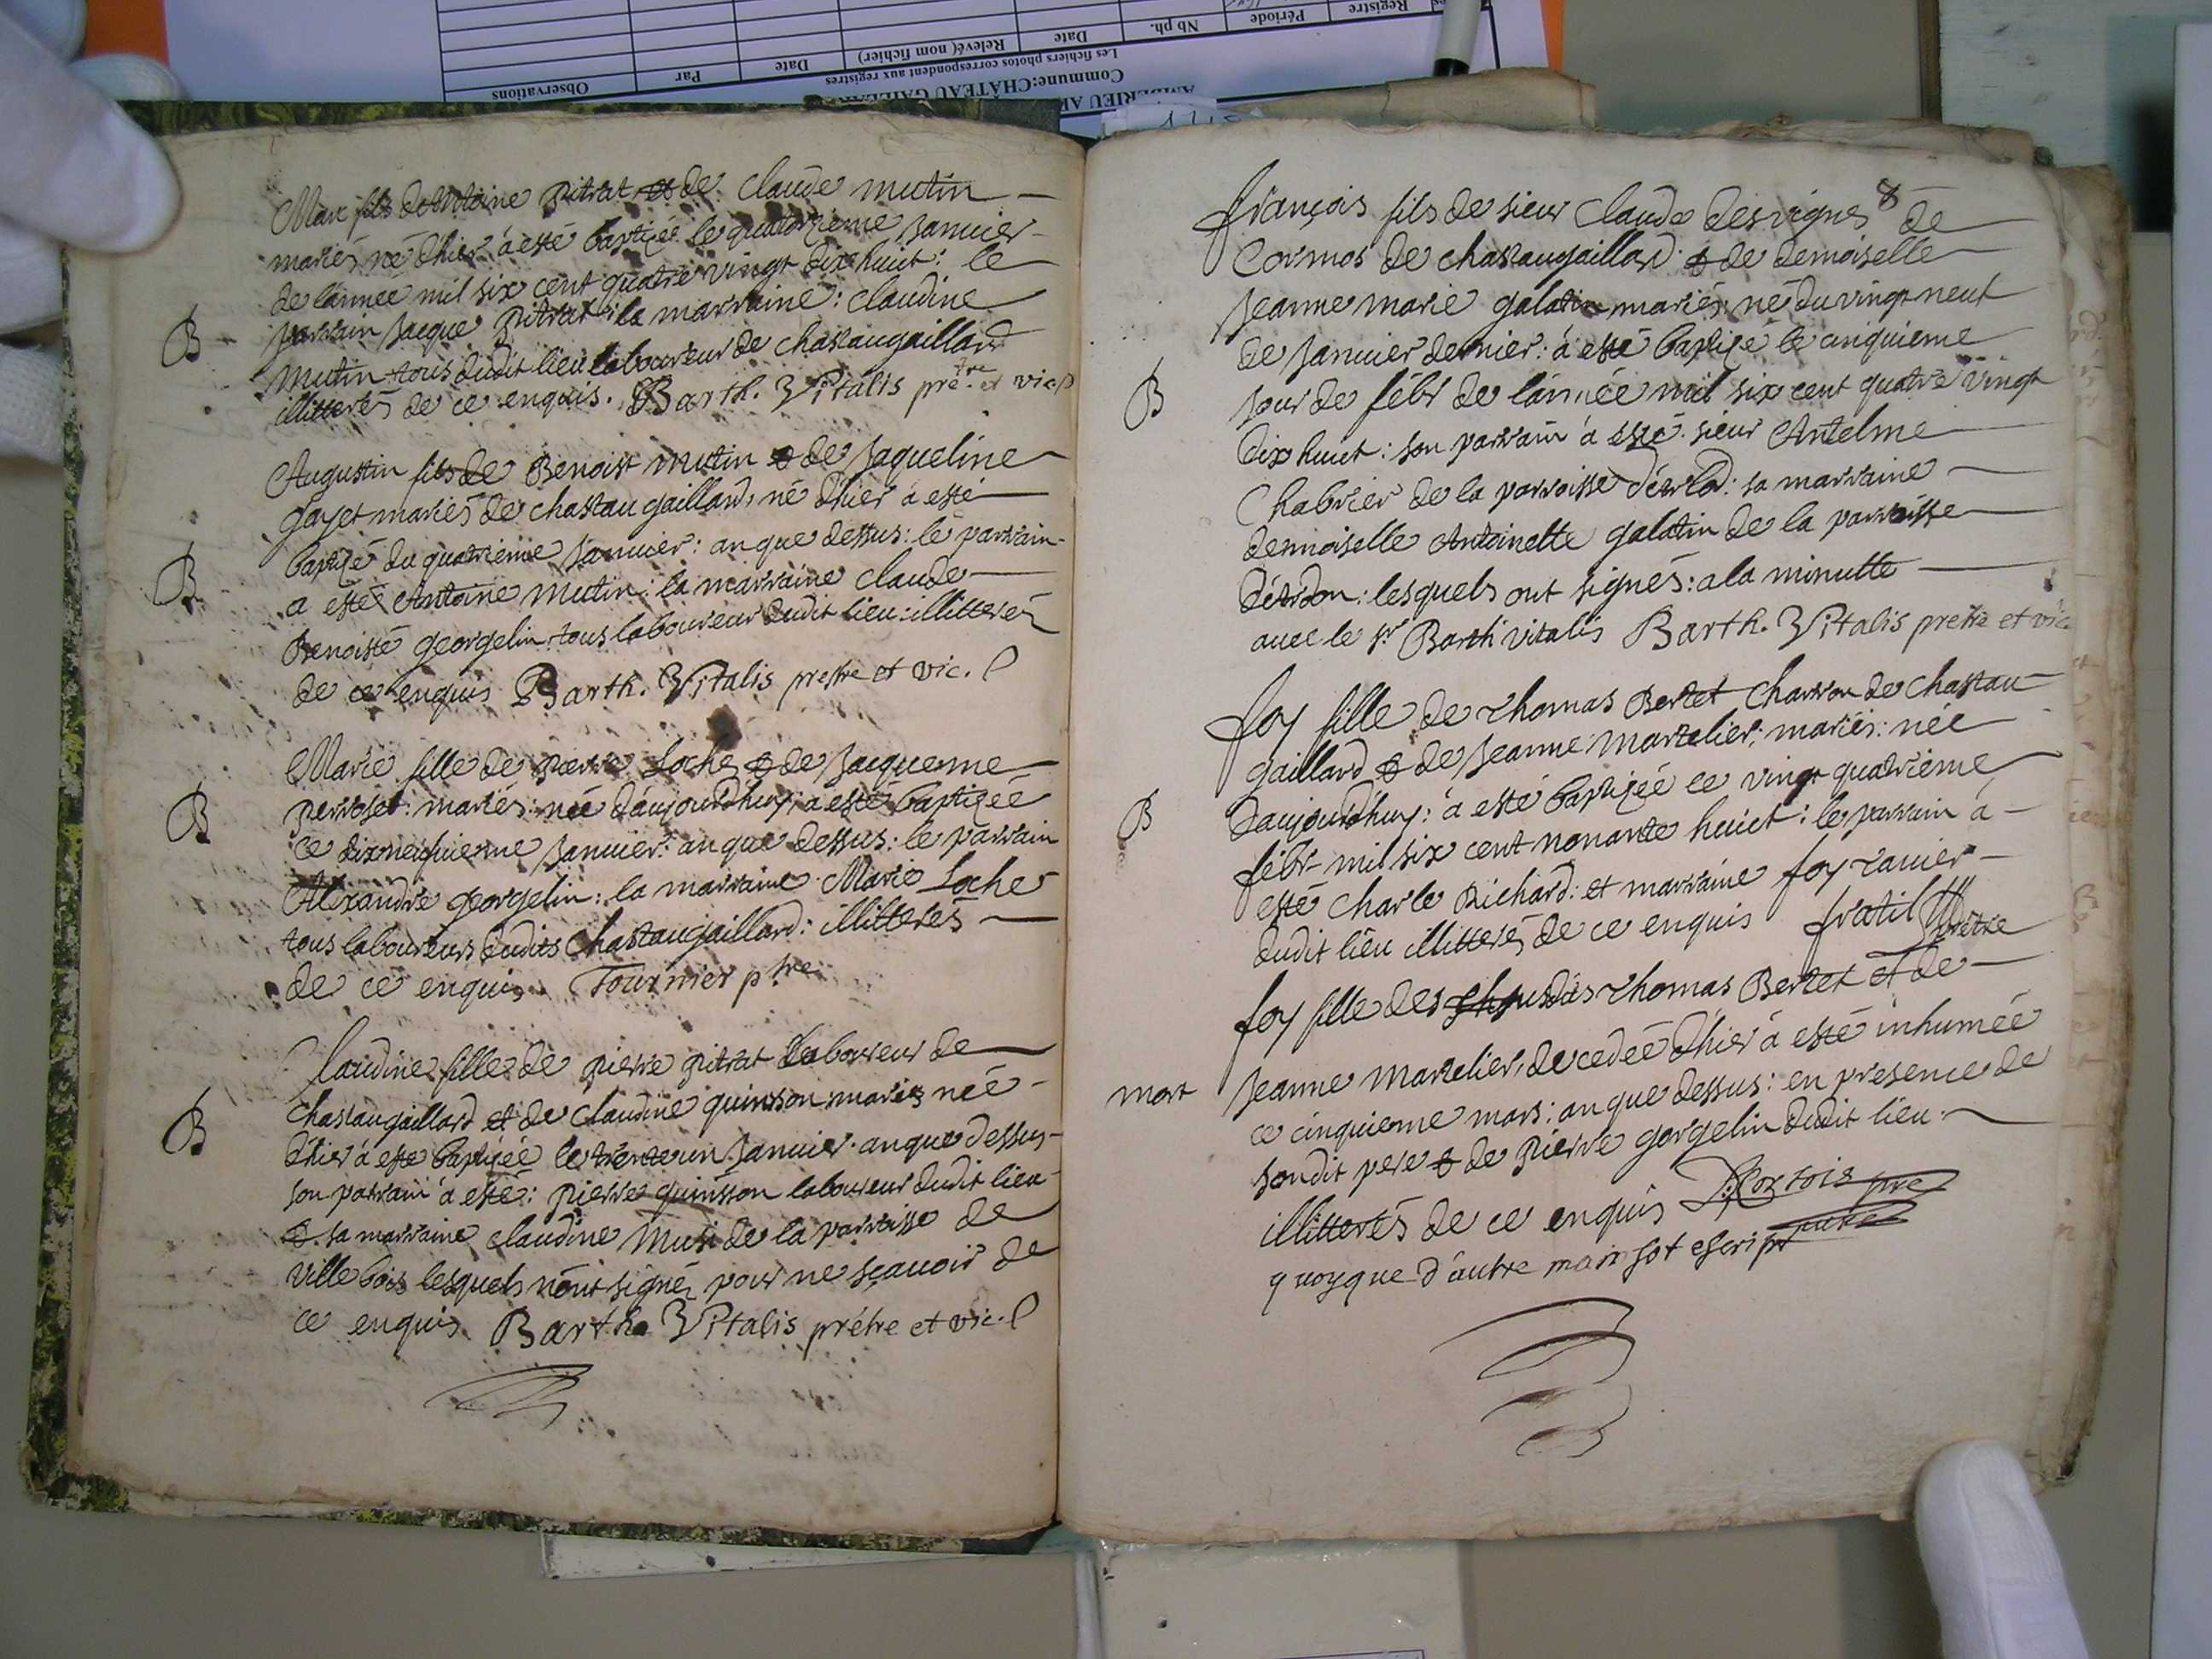 Observations
Par
Date
Relevé( nom fichier)
Date
Nb ph.
Période
Registre
Les fichiers photos correspondent aux registres
Commune:CHÂTEAU GAILLA
AMBERIEU
Marc fils de Antoine pitrat et de Claude mutin
mariés né d'hier à esté baptizé le quatorzieme Januier
de l'annee mil six cent quatre vingt dix huict: le
B
parrain Jacque pitrat: la marraine: Claudine
mutin tous dudit lieu laboureur de chastaugaillard
illitterés de ce enquis. Barth. Vitalis pretre et vic.
Augustin fils de Benoist mutin & de Jaqueline
gayet mariés de chastaugaillard, né d'hier a esté
B
baptizé du quatrieme Januier: an que dessus: le parrain
a esté Antoine mutin: la marraine Claude
Benoiste georgelin: tous laboureur dudit lieu: illitterés
de ce enquis Barth. Vitalis prestre et vic.
Marie fille de pierre Loche & de Jacquemme
B
perroset: mariés: née d'aujourdhuy, a esté baptizéé
ce dixneufuieme Januier: an que dessus: le parrain
Alexandre georgelin: la marraine Marie Loche
tous laboureurs dudits Chastaugaillard: illitterés
de ce enquis Tournier ptre
Claudine fille de pierre pitrat laboureur de
chastaugaillard et de claudine quinsson mariés néé
B
d'hier à esté baptizéé le trente un Januier an que dessus
son parrain à esté: pierre quinsson laboureur dudit lieu
& sa marraine claudine Musi de la parroisse de
Ville bois lesquels n'ont signés pour ne sçauoir de
ce enquis. Barth. Vitalis prétre et vic.
8
françois fils de sieur Claude desvignes de
Cormos de chastaugaillard & de demoiselle
Jeanne marie galatin mariés: né du vingt neuf
de Januier dernier: à esté baptizé le cinquieme
B
Jour de febr de l'année mil six cent quatre vingt
dix huict: son parrain à esté sieur Antelme
Chabrier de la parroisse : sa marraine
demoiselle Antoinette galatin de la parroisse
: lesquels ont signés: a la minutte
auec le sr Barth vitalis Barth. Vitalis pretre et vic
foy fille de thomas Bertet charron de chastau
gaillard & de Jeanne martelier: mariés: née
B
d'aujourd'huy: à esté baptizéé ce vingt quatrieme
febr mil six cent nonante huict: le parrain à
esté charle Richard: et marraine foy tauier
dudit lieu illitterés de ce enquis fratil pretre
foy fille des thomas Bertet et de
mort
Jeanne martelier, decedéé d'hier à esté inhumeé
ce cinquieme mars: an que dessus: en presence de
sondit pere & de pierre gorgelin dudit lieu
illitterés de ce enquis pre
quoyque d'autre main sot escript